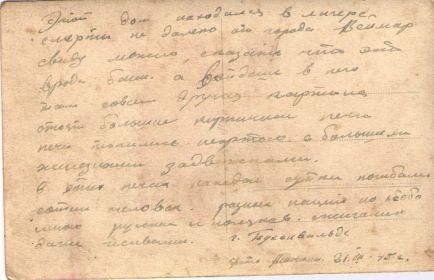 Этот дом находился в лагере
смерти не далеко от города Веймар
свиду можно сказать что это
вроде бани. а войдеш в него
там совсем другая картина
стоят большие кирпичные печи
печи топились с большими
железными задвижками.
в этих печах каждые сутки погибали
сотни человек. разных наций но
много русских и сжигали
даже живыми. г. Бухенвальде